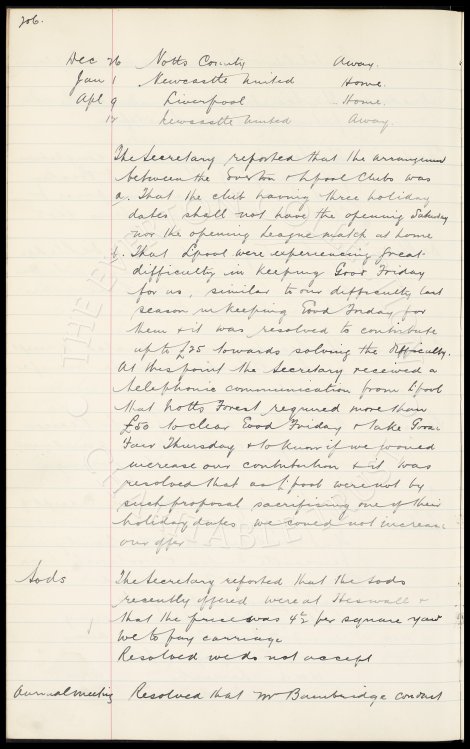 706.
Dec 26 Notts County Away.
Jan 1 Newcastle United Home.
Apl 9 Liverpool Home.
12 Newcastle United Away.
The Secretary reported that the arrangement
between the Everton & L'pool Clubs was
a. That the club having three holiday
dates shall not have the opening Saturday
nor the opening League match at home
b. That L'pool were experiencing great
difficulty in keeping Good Friday
for us, similar to our difficulty last
season in keeping Good Friday for
them & it was resolved to contribute
up to £25 towards solving the difficulty.
At this point the Secretary received a
telephonic communication from L'pool
that Notts Forest required more than
£50 to clear Good Friday & take Goose
Fair Thursday & to know if we would
increase our contribution & it was
resolved that as L'pool were not by
such proposal sacrificing one of their
holiday dates we could not increase
our offer
Sods The Secretary reported that the sods
recently offered were at Heswall &
that the price was 4½ per square yard
we to pay carriage
Resolved we do not accept
Annual Meeting Resolved that Mr Bainbridge conduct
THE EVE
TABLE